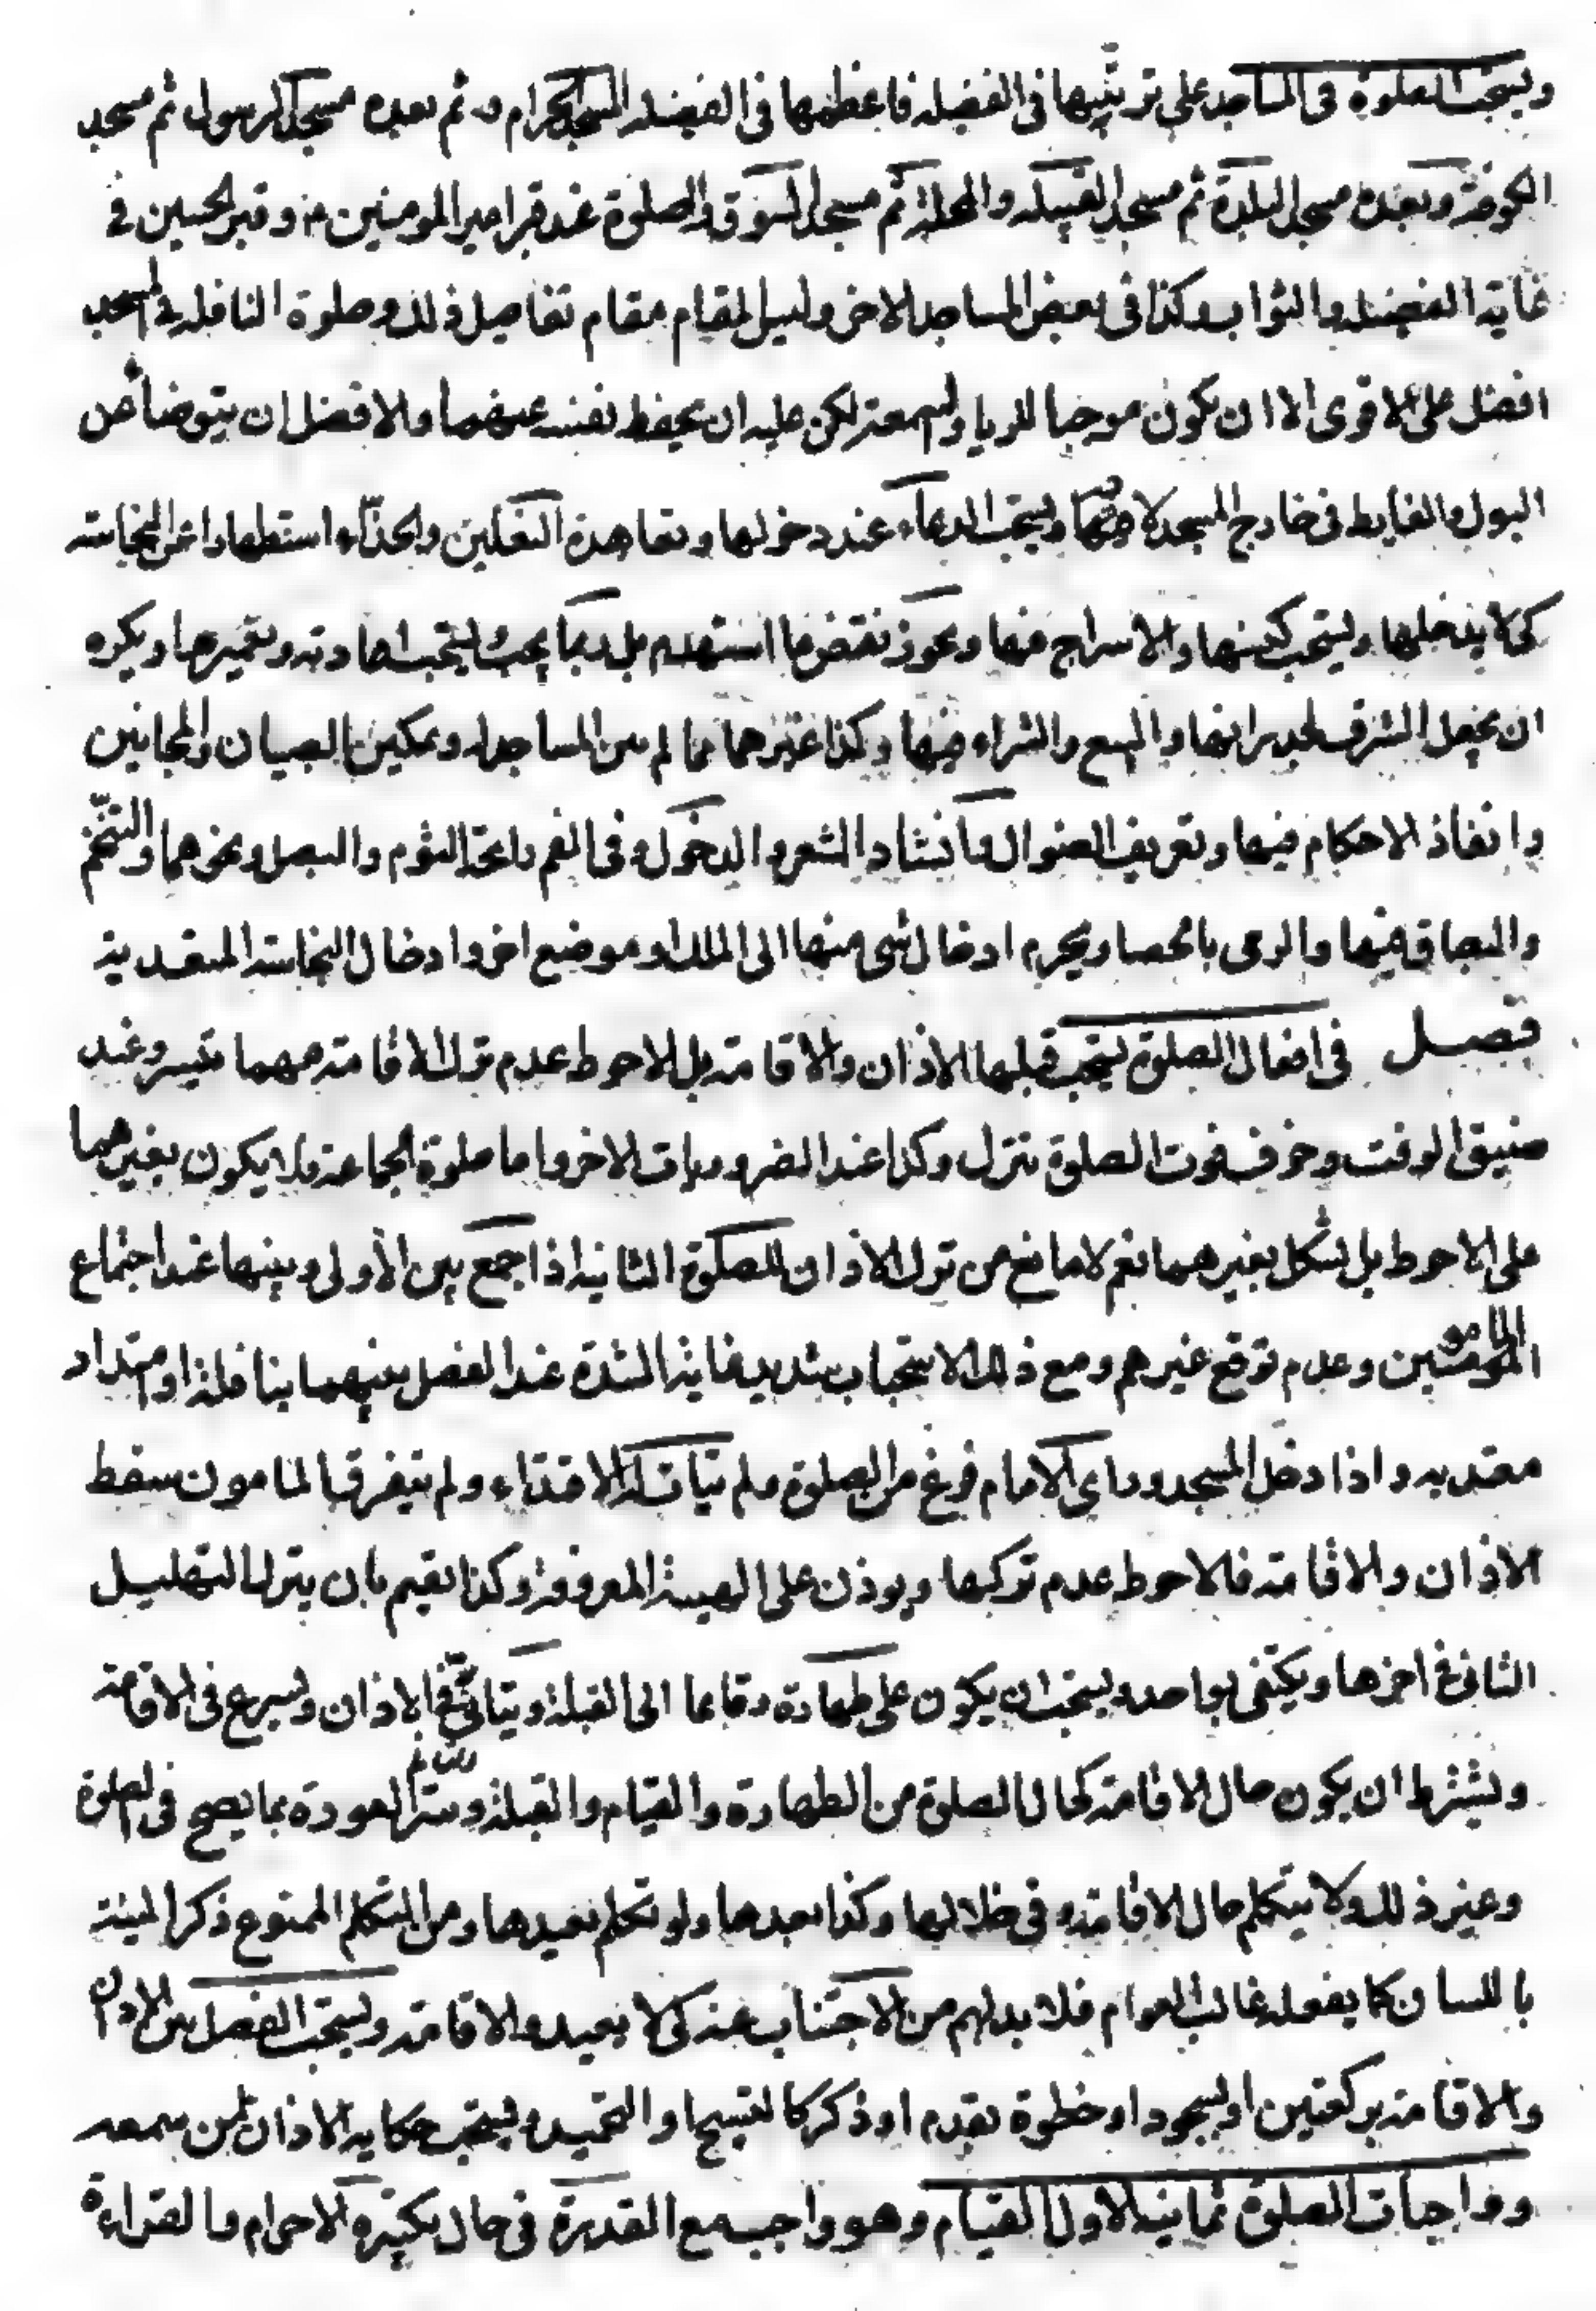 ويستحب الصلوة في المساجد على ترتيبها في الفضيله فاعظمها في الفضيله المسجد الحرام ثم بعده مسجد الرسول ثم مسجد
الكوفة وبعده مسجد البلدة ثم مسجد القبيله والمحلة ثم مسجد السوق والصلوة عند قبر امير المومنين وقبر الحسين في
غاية الفضيلة والثواب وكذا في بعض المساجد الاخر وليس المقام مقام تفاصيل ذلك وصلوة النافله في المسجد
افضل على الاقوى الا ان يكون موجبا للريا والسمعة لكن عليه ان يحفظ نفسه عنهما والافضل ان يتوضأ عن
البول والغايط في خارج المسجد لا فيها ويستحب الدعاء عند دخولها وتعاهدة النعلين والحذاء استظهارا عن النجاسة
كى لا يدخلها ويستحب كنسها والاسراج فيها ويجوز نقض ما استهدم بل ربما يجب ويستحب اعادته وتعميرها ويكره
ان يجعل الشرف لجدرانها والبيع والشراء فيها وكذا غيرهما مما لم من المساجد له وتمكين الصبيان والمجانين
وانفاذ الاحكام فيها وتعريف الضوال وانشاد الشعر والدخول وفى الفم رائحة الثوم والبصل ونحوهما والتنخم
والبصاق فيها والرمى بالحصا ويحرم ادخال شى منها الى الملك او موضع اخر وادخال النجاسة المتعدية
فصل في افعال الصلوة يستحب قبلها الاذان والاقامة بل الاحوط عدم ترك الاقامة مهما تيسر وعند
ضيق الوقت وخوف فوت الصلوة تترك وكذا عند الضروريات الاخر واما صلوة الجماعة فلا يكون بغيرهما
على الاحوط بل يشكل بغيرهما نعم لا مانع من ترك الاذان للصلوة الثانية اذا جمع بين الأولى وبينها عند اجتماع
المامومين وعدم توقع غيرهم ومع ذلك الاستحباب شديد غاية الشدة عند الفصل بينهما بنافلة او امتداد
معتد به واذا دخل المسجد وراى الامام فرغ من الصلوة ولم يتات له الاقتداء ولم يتفرق المامون سقط
الاذان والاقامة فالاحوط عدم تركها ويوذن على الهيئة المعروفة وكذا يقيم بان يترك التهليل
الثاني في اخرها ويكتفى بواحد ويستحب ان يكون على طهارة وقايما الى القبلة ويتانى في الاذان ويسرع فى الاقامة
ويشترط ان يكون حال الاقامة كحال الصلوة من الطهارة والقيام والقبلة وستر العورة بما يصح في الصلوة
وغير ذلك ولا يتكلم حال الاقامة وفى خلالها وكذا بعدها ولو تكلم يعيدها ومن التكلم الممنوع ذكر النية
باللسان كما يفعله غالب العوام فلا بد لهم من الاجتناب عنه كى لا يعيدوا الاقامة ويستحب الفصل بين الاذان
والاقامة بركعتين او سجود او خطوة بقدم او ذكر كالتسبيح او التحميد ويستحب حكاية الاذان لمن سمعه
وواجبات الصلوة ثمانية الاول القيام وهو واجب مع القدرة فى حال تكبيرة الاحرام والقراءة